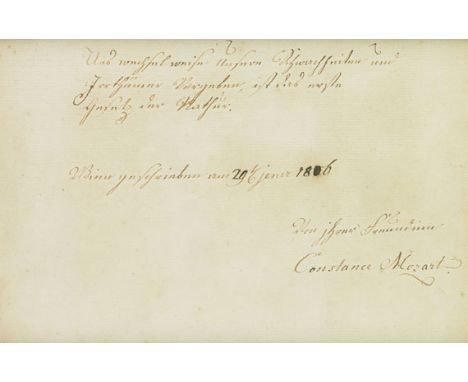 Uns wechsel weise unsere Schwachheiten und
Jrrthümer Vergeben, ist das erste
Gesetz der Nathur.
Wien geschrieben am 29t jener 1806
Von jhrer Freundinn
Constance Mozart.